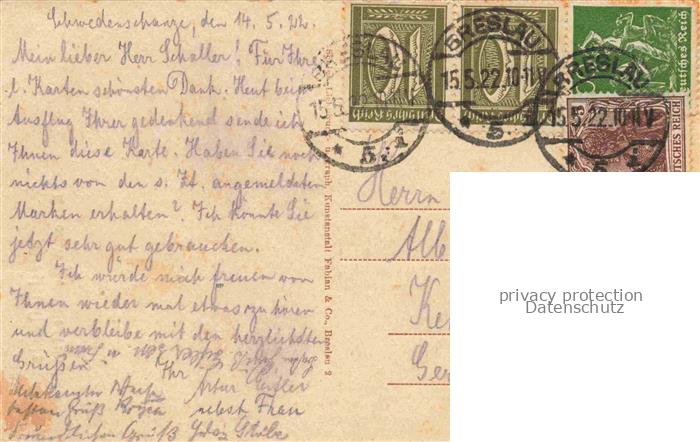 Schwedenschanze, den 14. 5. 22.
Mein lieber Herr Schaller! Für Ihre
l. Karten schönsten Dank. Heut beim
Ausflug Ihrer gedenkend sende ich
Ihnen diese Karte. Haben Sie noch
nichts von den s. Zt. angemeldeten
Marken erhalten? Ich könnte Sie
jetzt sehr gut gebrauchen.
Ich würde mich freuen von
Ihnen wieder mal etwas zu hören
und verbleibe mit den herzlichsten
Grüßen
Ihr
Artur
nebst Frau
Gruß
Gruß
Kunstanstalt Fabian & Co., Breslau 2
BRESLAU
15.5.22.10-11V
* 5
BRESLAU
15.5.22.10-11V
* 5
Deutsches Reich
Deutsches Reich
Deutsches Reich
DEUTSCHES REICH
Herrn
Alb
Ke
Ger
privacy protection
Datenschutz